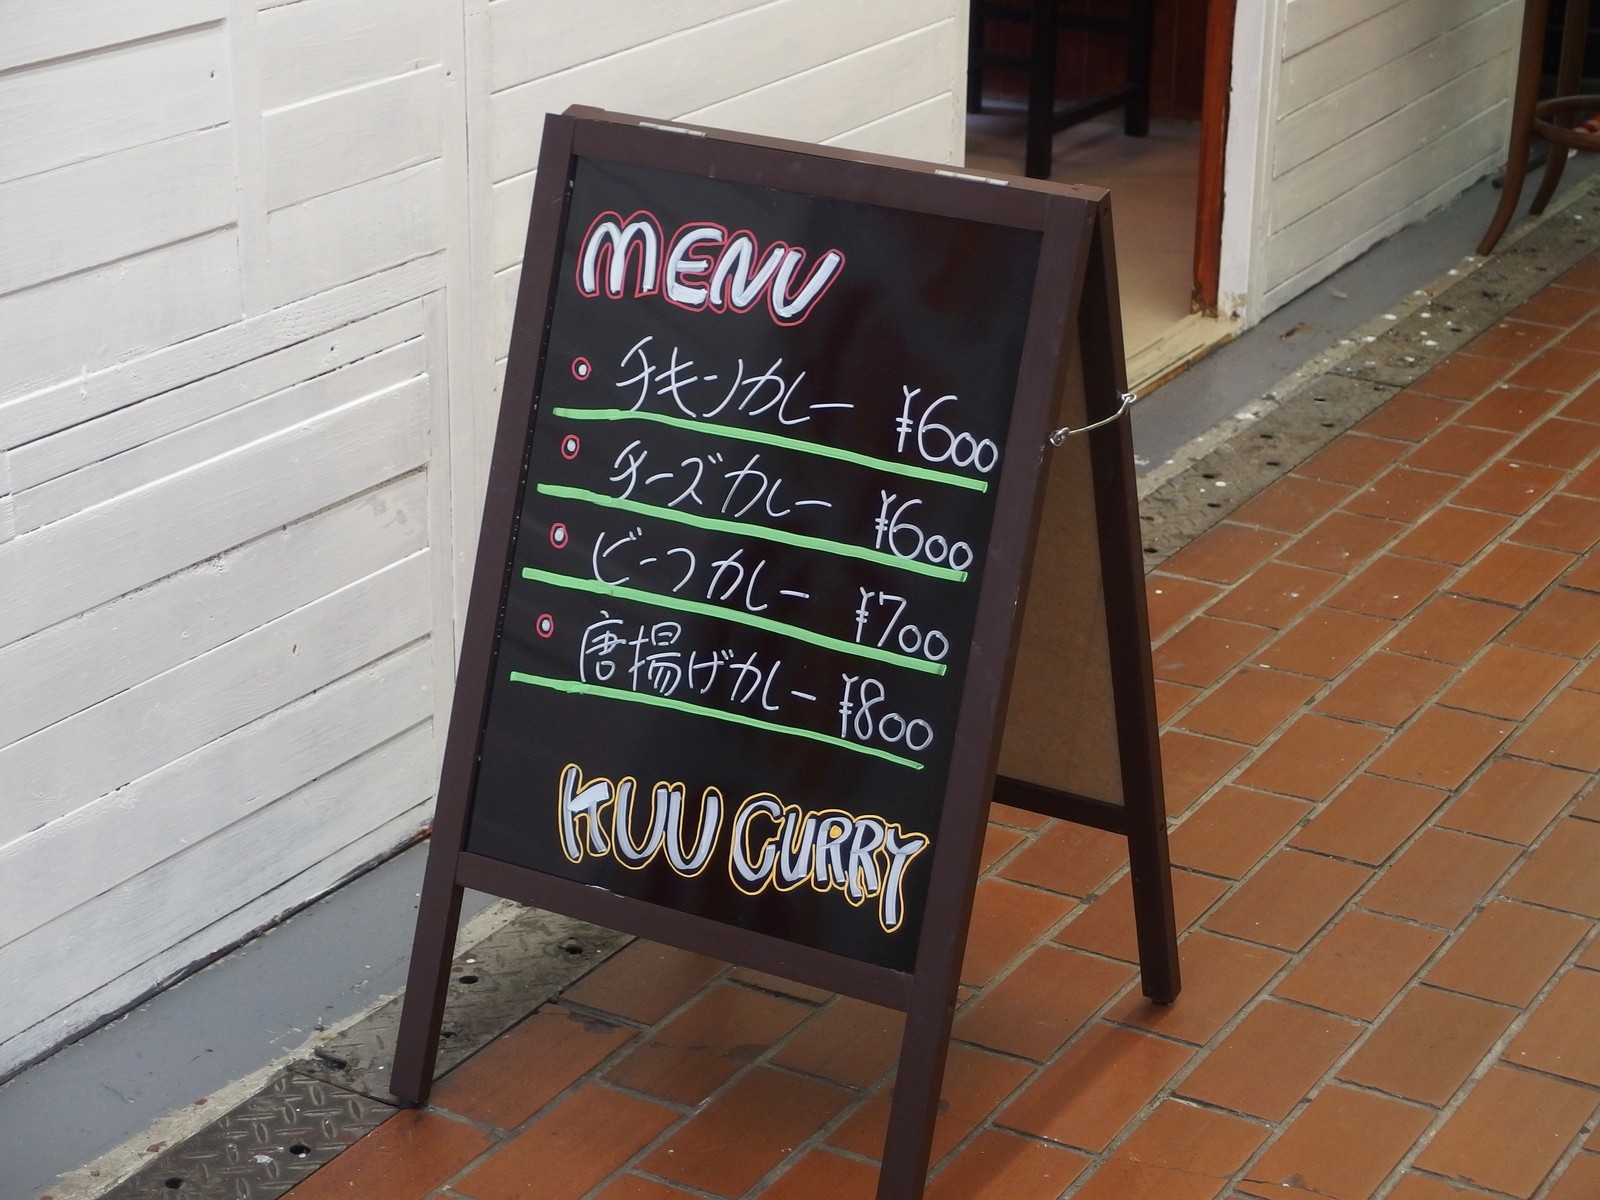 MENU
チキンカレー ¥600
チーズカレー ¥600
ビーフカレー ¥700
唐揚げカレー ¥800
KUU CURRY